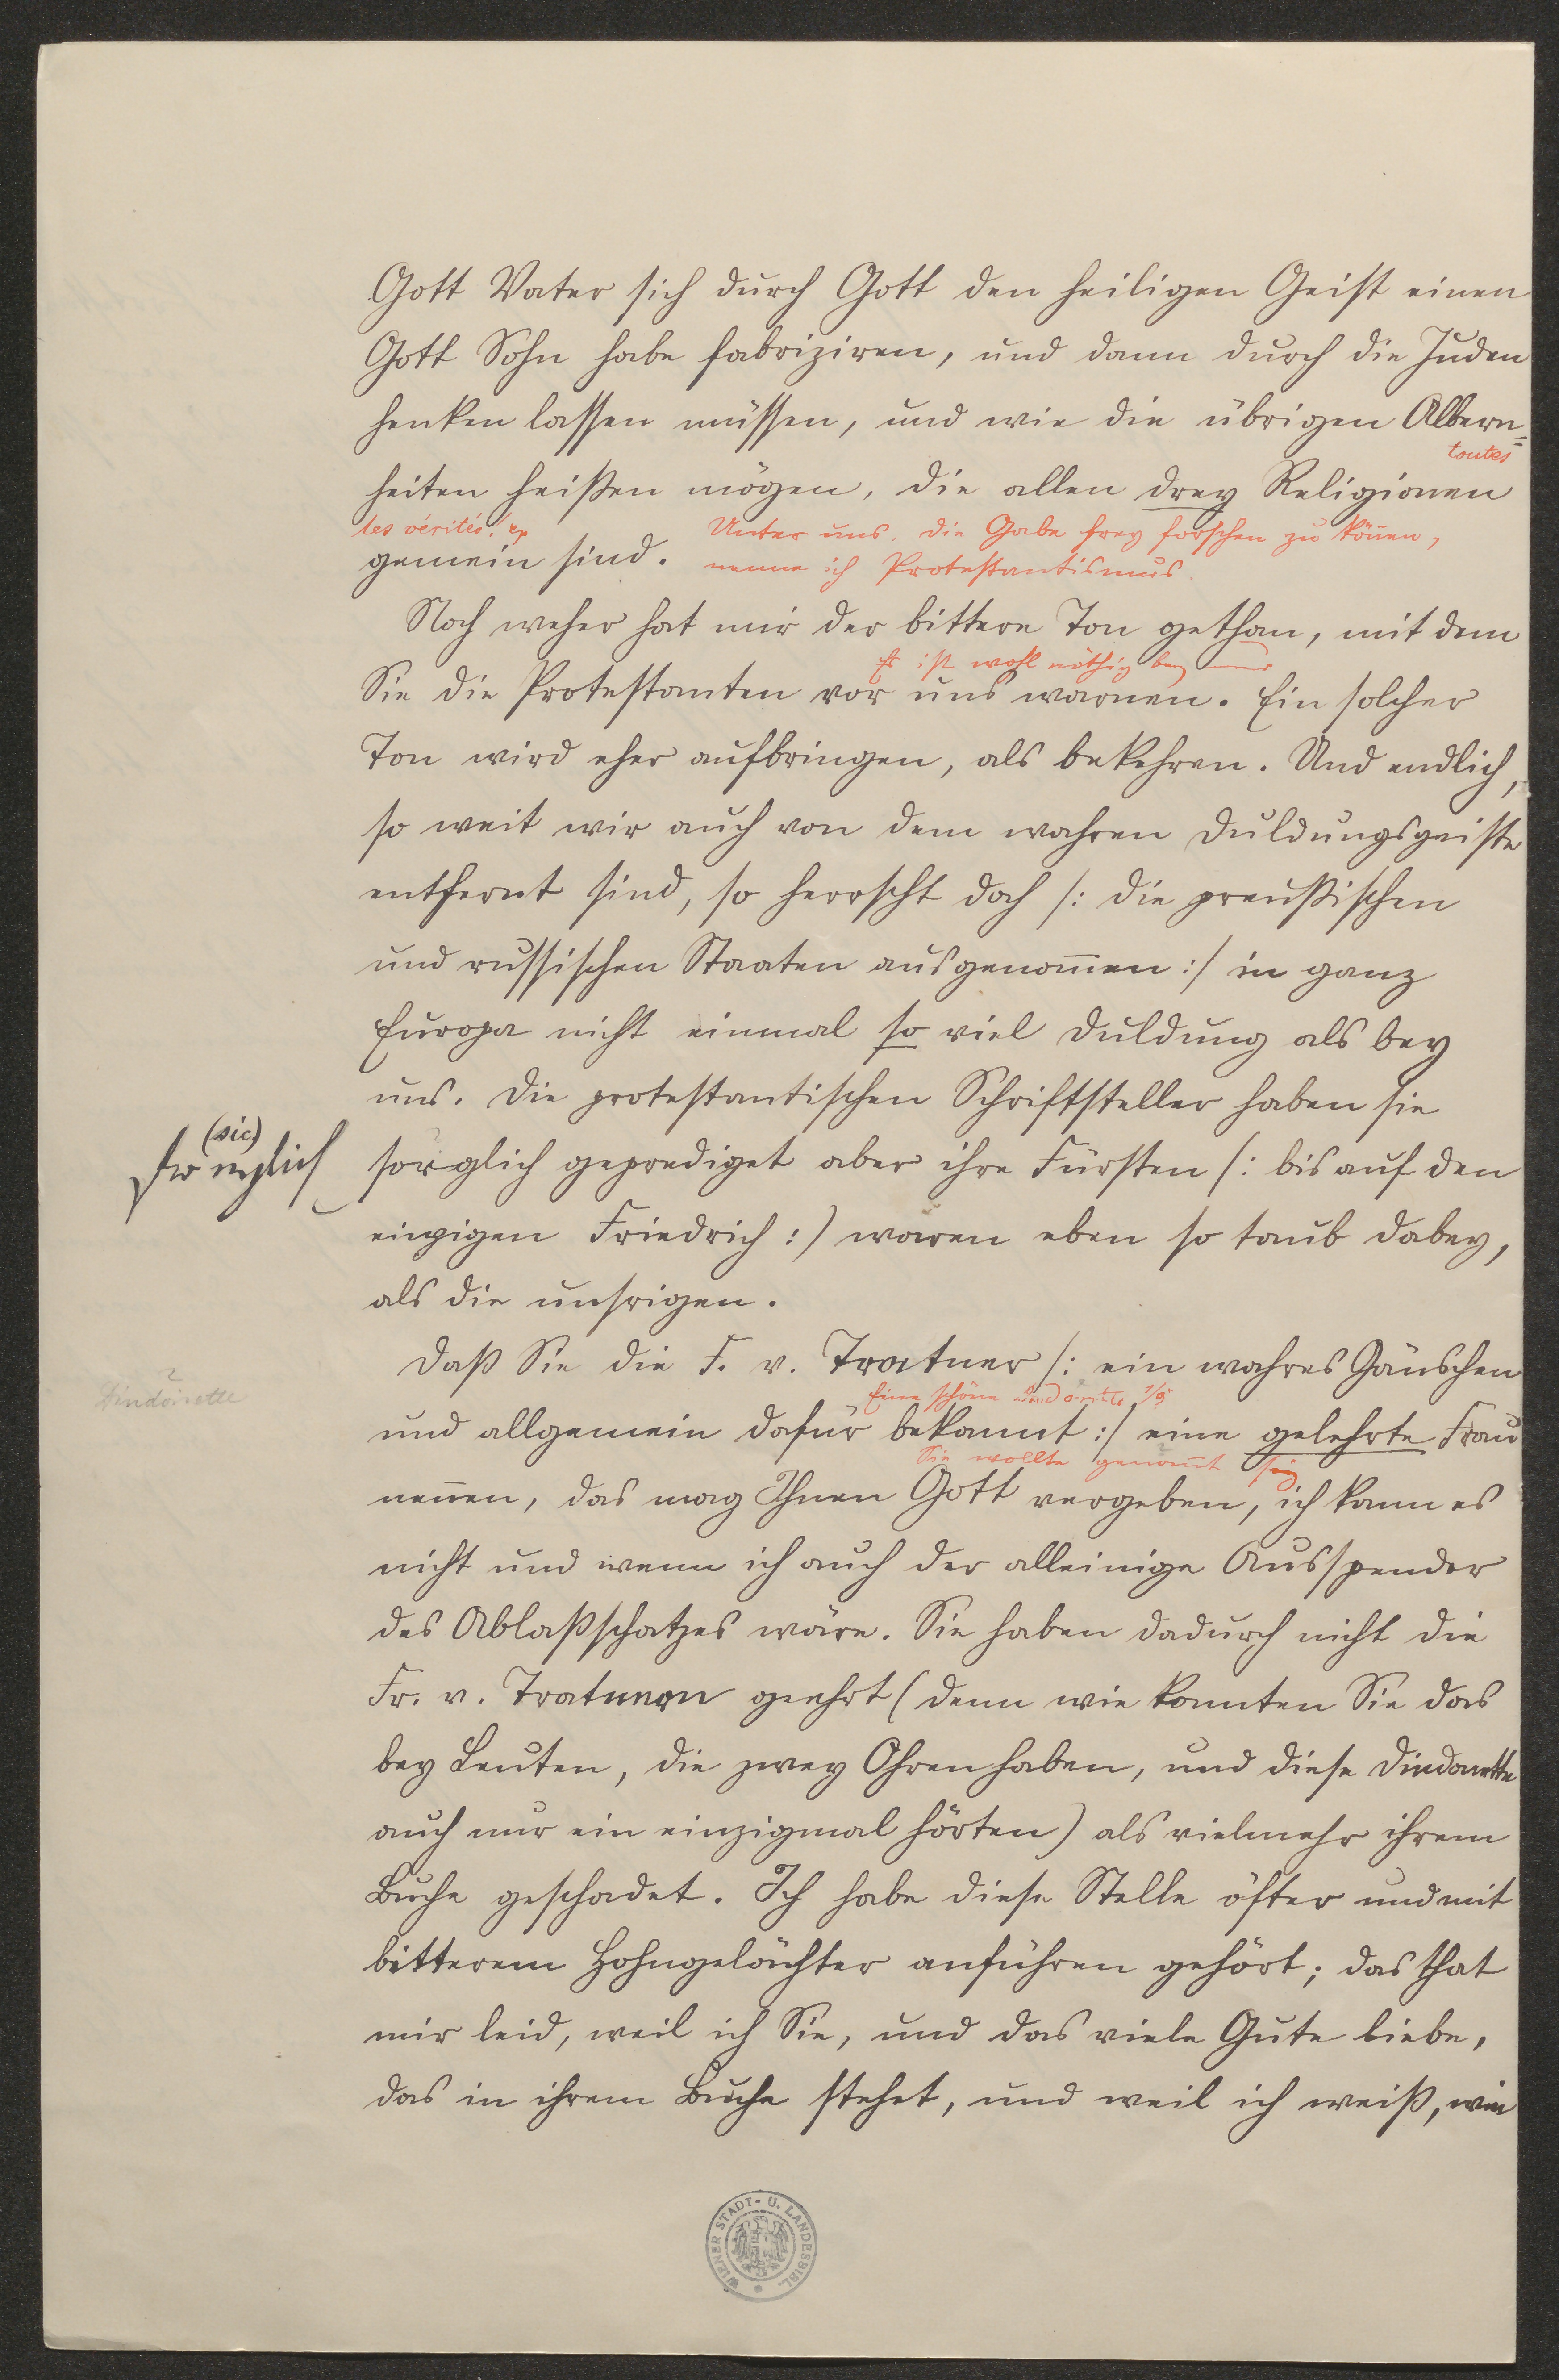 Gott Vater sich durch Gott den heiligen Geist einen
Gott Sohn habe fabriziren, und dann durch die Juden
henken lassen müssen, und wie die übrigen Albern=
toutes
heiten heißen mögen, die allen drey Religionen
les vérités!
Unter uns. die Gabe frey forschen zu können,
gemein sind.
nenne ich Protestantismus.
Noch weher hat mir der bittere Ton gethan, mit dem
Es ist wohl nöthig bey
Sie die Protestanten vor uns warnen. Ein solcher
Ton wird eher aufbringen, als bekehren. Und endlich,
so weit wir auch von dem wahren Duldungsgeiste
entfernt sind, so herrscht doch /: die preußischen
und russischen Staaten ausgenom̄en :/ in ganz
Europa nicht einmal so viel Duldung als bey
uns. Die protestantischen Schriftsteller haben sie
(sic)
sorglich geprediget aber ihre Fürsten /: bis auf den
einzigen Friedrich :) waren eben so taub dabey,
als die unsrigen.
Daß Sie die F. v. Tratner /: ein wahres Gänschen
?
Dindonette
Eine schöne
und allgemein dafür bekannt :/ eine gelehrte Frau
Sie wollte genan̄t sein
nen̄en, das mag Ihnen Gott vergeben, ich kann es
nicht und wenn ich auch der alleinige Ausspender
des Ablaßschatzes wäre. Sie haben dadurch nicht die
Fr. v. Tratnern geehrt (denn wie konnten Sie das
bey Leuten, die zwey Ohren haben, und diese Dindonette
auch nur ein einzigmal hörten) als vielmehr ihrem
Buche geschadet. Ich habe diese Stelle öfter und mit
bitterem Hohngelächter anführen gehört; das that
mir leid, weil ich Sie, und das viele Gute liebe,
das in ihrem Buche stehet, und weil ich weiß, wie
WIENER STADT- U. LANDESBIBL.